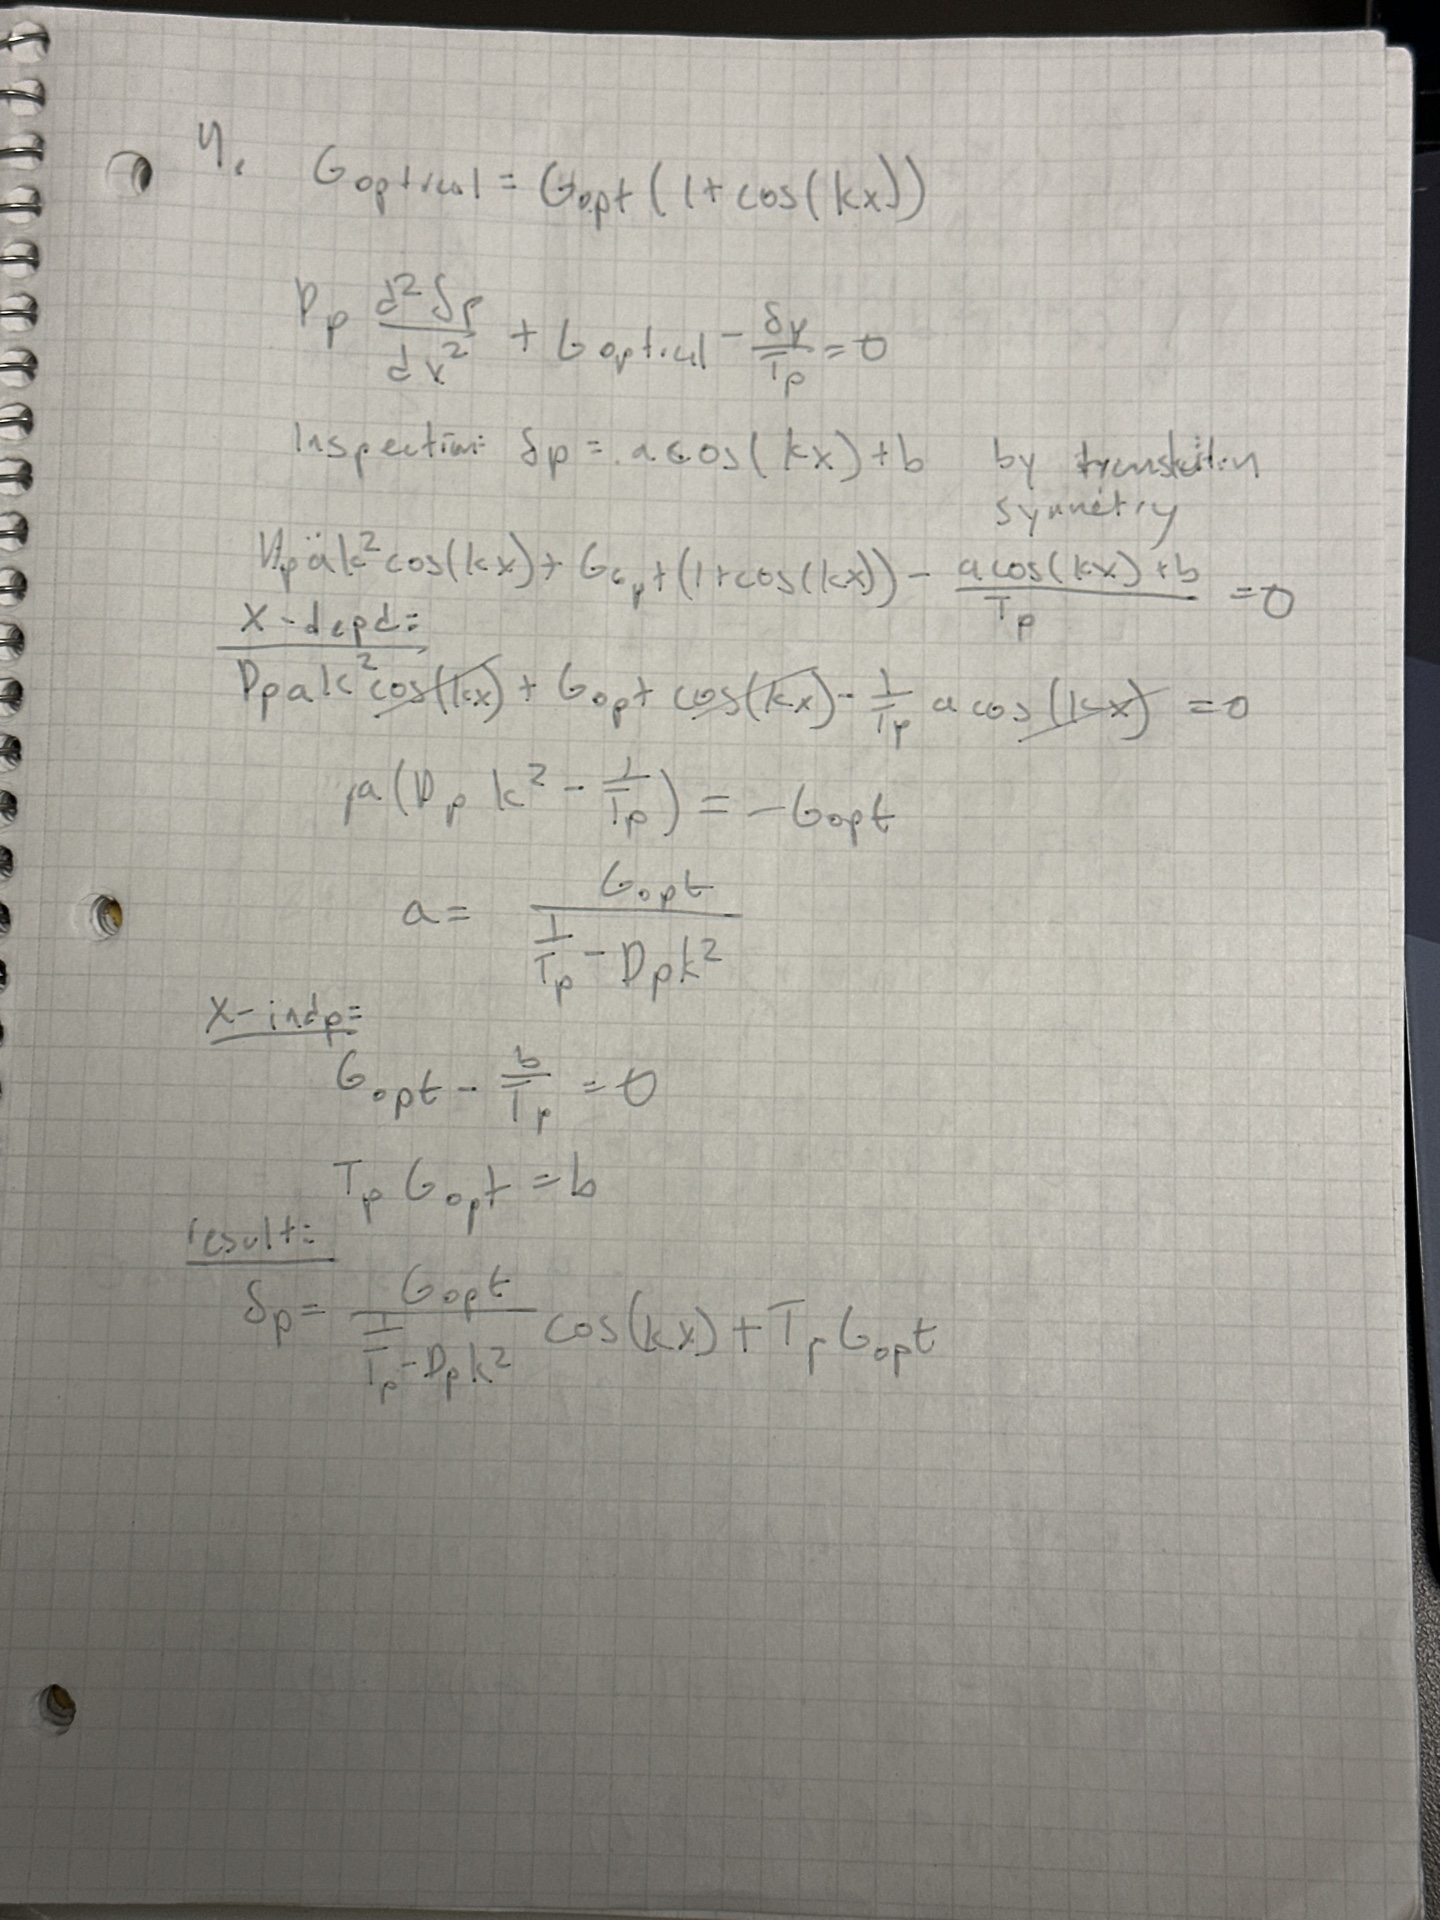 4. G optical = Gopt (1 + cos(kx))
Dp d²δp/dx² + G optical - δp/τp = 0
Inspection: δp = a cos(kx) + b by translation
symmetry
Dp a k² cos(kx) + Gopt (1 + cos(kx)) - (a cos(kx) + b)/τp = 0
x-depd:
Dp a k² cos(kx) + Gopt cos(kx) - 1/τp a cos(kx) = 0
a(Dp k² - 1/τp) = -Gopt
a = Gopt/(1/τp - Dp k²)
x-indp:
Gopt - b/τp = 0
τp Gopt = b
result:
δp = Gopt/(1/τp - Dp k²) cos(kx) + τp Gopt